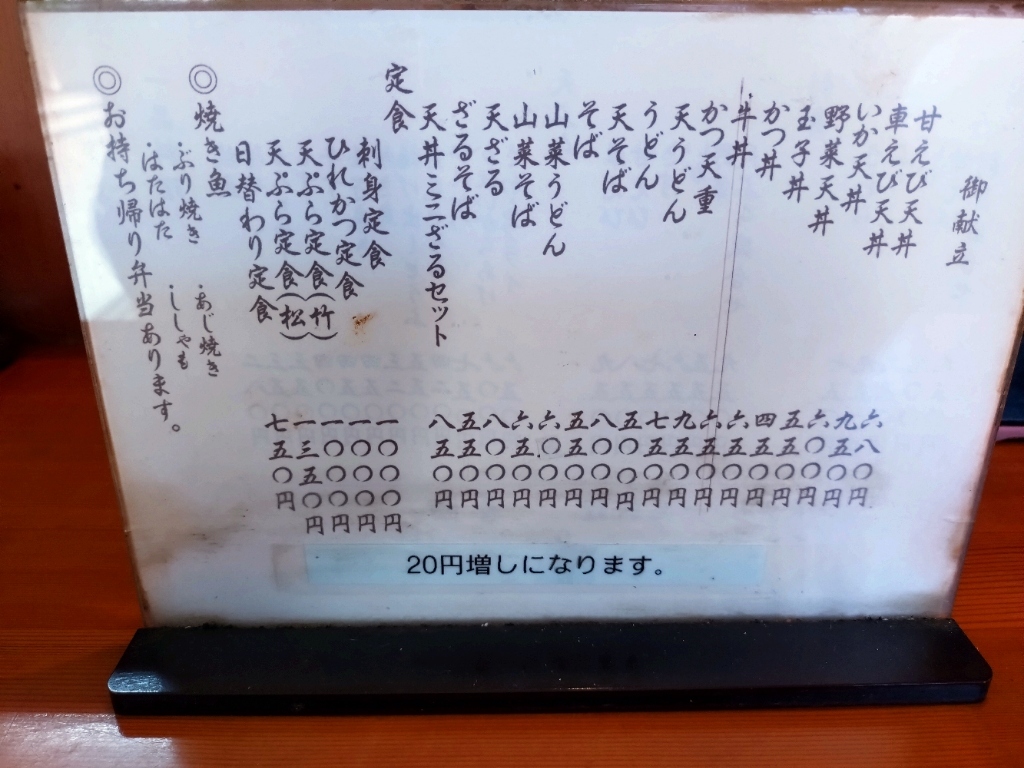 御献立
甘えび天丼 六八〇円
車えび天丼 九五〇円
いか天丼 六〇〇円
野菜天丼 五五〇円
玉子丼 四五〇円
かつ丼 六五〇円
牛丼 六五〇円
かつ天重 九〇〇円
天うどん 七五〇円
うどん 五〇〇円
天そば 八〇〇円
そば 五五〇円
山菜うどん 六〇〇円
山菜そば 六五〇円
天ざる 八〇〇円
ざるそば 五五〇円
天丼ミニざるセット 八五〇円
定食
刺身定食 一〇〇〇円
ひれかつ定食 一〇〇〇円
天ぷら定食(竹) 一〇〇〇円
天ぷら定食(松) 一三五〇円
日替わり定食 七五〇円
◎焼き魚
・ぶり焼き ・あじ焼き
・はたはた ・ししゃも
◎お持ち帰り弁当あります。
20円増しになります。